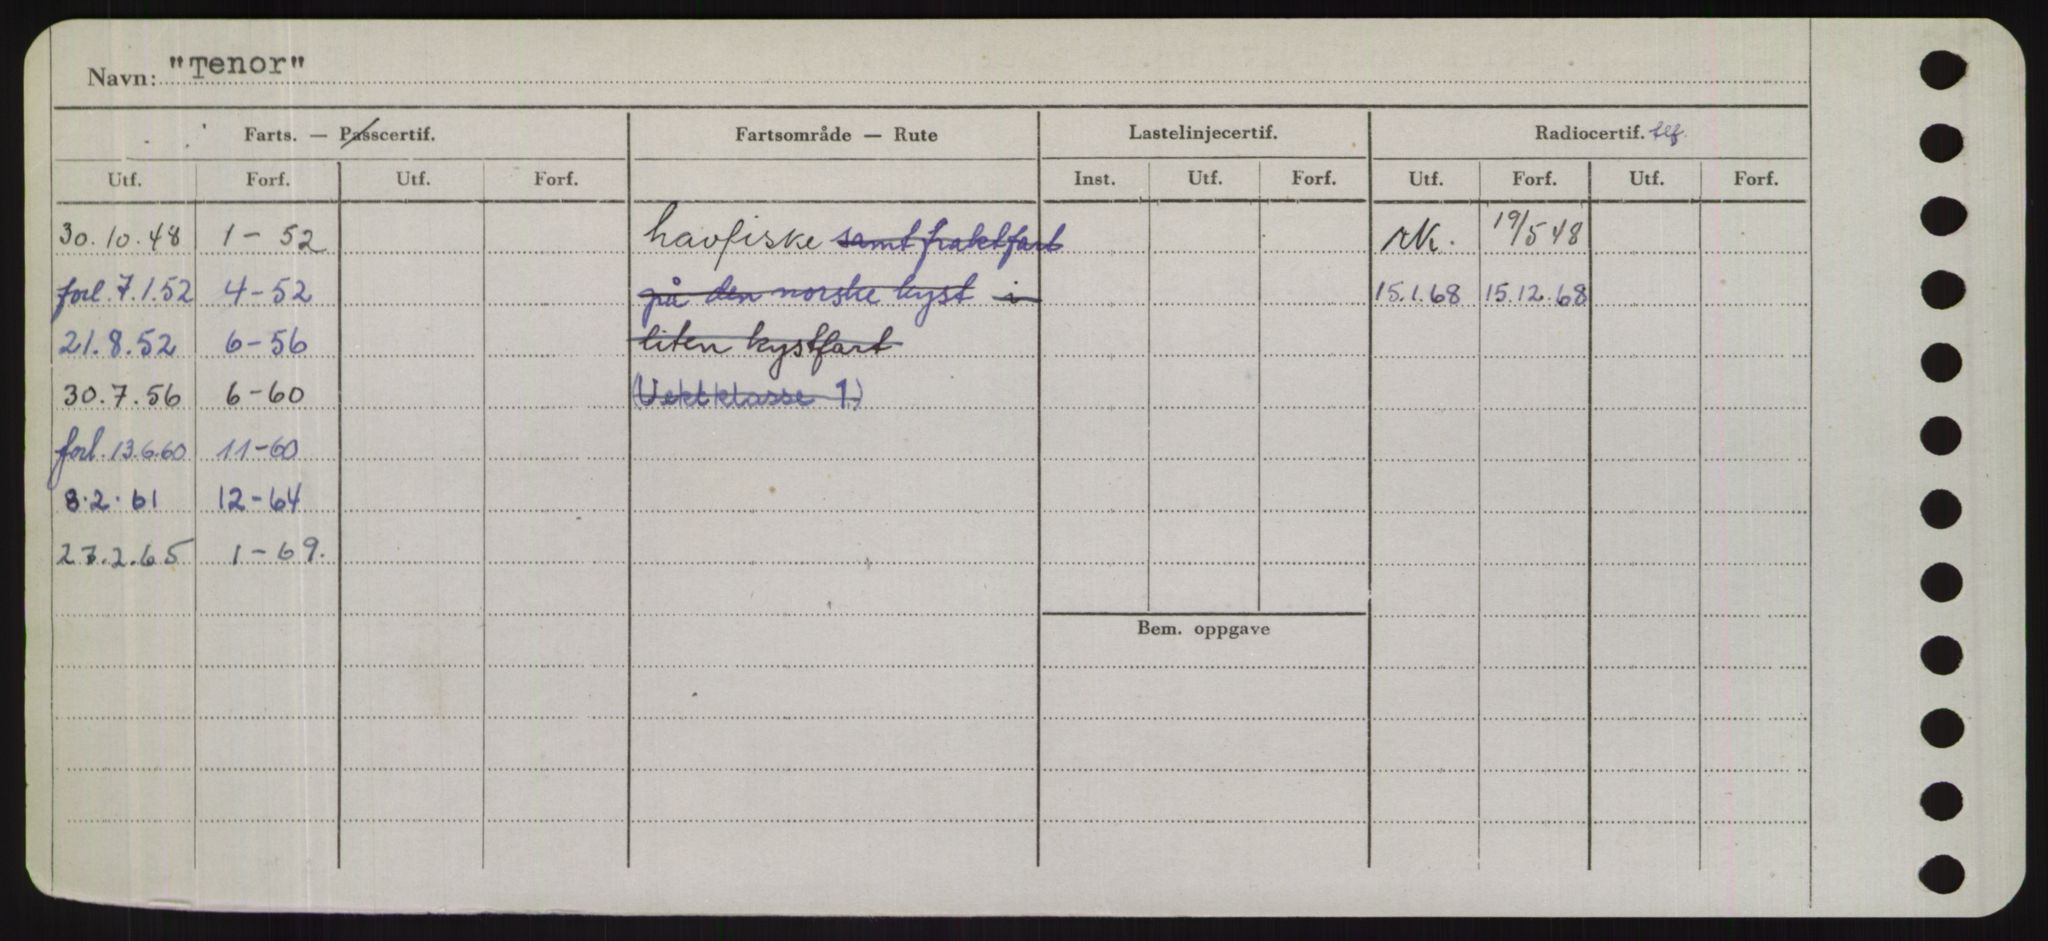 Navn: "Tenor"
Farts. — Passcertif. Fartsområde — Rute Lastelinjecertif. Radiocertif. tlf.
Utf. Forf. Utf. Forf. Inst. Utf. Forf. Utf. Forf. Utf. Forf.
30.10.48 1-52 havfiske samt fraktfart rk. 19/5 48
forl. 7.1.52 4-52 på den norske kyst i 15.1.68 15.12.68
21.8.52 6-56 liten kystfart
30.7.56 6-60 (Vektklasse 1)
forl. 13.6.60 11-60
8.2.61 12-64
27.2.65 1-69.
Bem. oppgave